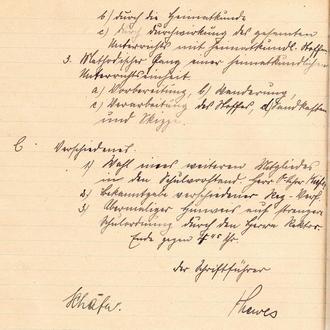 b) durch die Heimatkunde
c) durch Durchwirkung des gesamten
Unterrichts mit heimatkundl. Stoffen
3. Methodischer Gang einer heimatkundlichen
Unterrichtseinheit
a) Vorbereitung, b) Wanderung,
c) Verarbeitung des Stoffes, d) Sandkasten
und Skizze.
C. Verschiedenes:
1) Wahl eines weiteren Mitgliedes
in den Schulvorstand Herr
2) Bekanntgabe verschiedener Reg-Verf.
3) Abermaliger Hinweis auf strenge
Schulordnung durch den Herrn Rektor
Ende gegen 7⁴⁵ Uhr.
der Schriftführer
Schäfer. Thewes